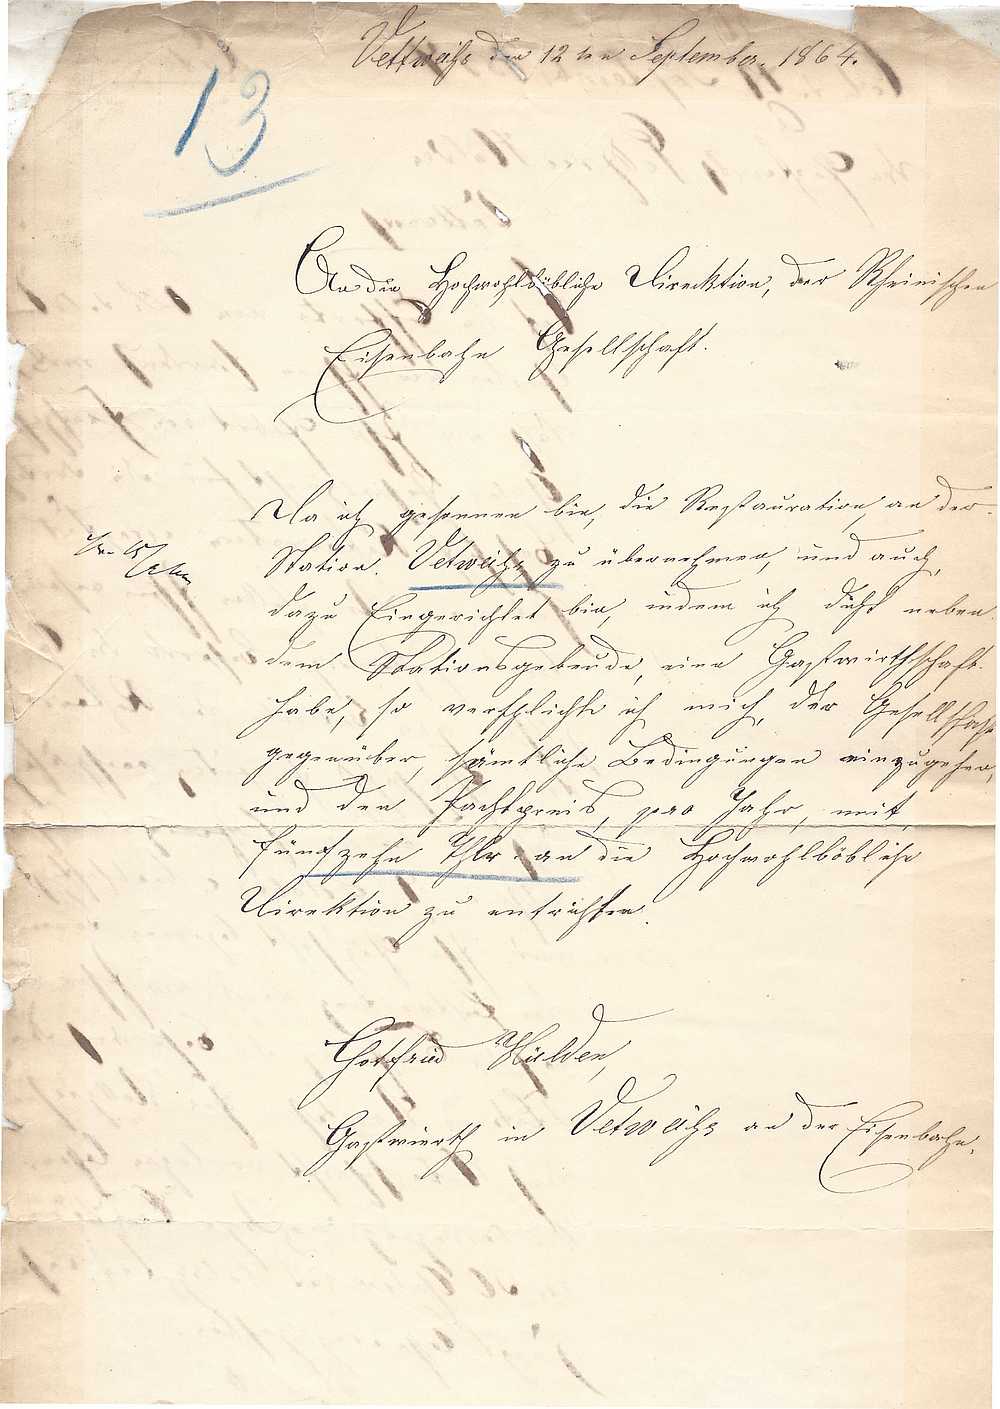 Vettweiß den 12ten September. 1864.
13
An die Hochwohllöbliche Direcktion, der Rheinischen
Eisenbahn Gesellschaft.
Da ich gesonnen bin, die Restauration, an der
Station. Vetweihs, zu übernehmen, und auch,
dazu Eingerichtet bin, indem ich dicht neben
dem Stationsgebeude, eine Gastwirthschaft
habe, so verpflichte ich mich, der Gesellschaft
gegenüber, sämtliche Bedingungen einzugehen,
und den Pachtpreis, pro Jahr, mit,
fünfzehn Thlr. an die Hochwohllöbliche
Direktion zu entrichten.
Gottfried Hülden,
Gastwierth in Vetweihs an der Eisenbahn.